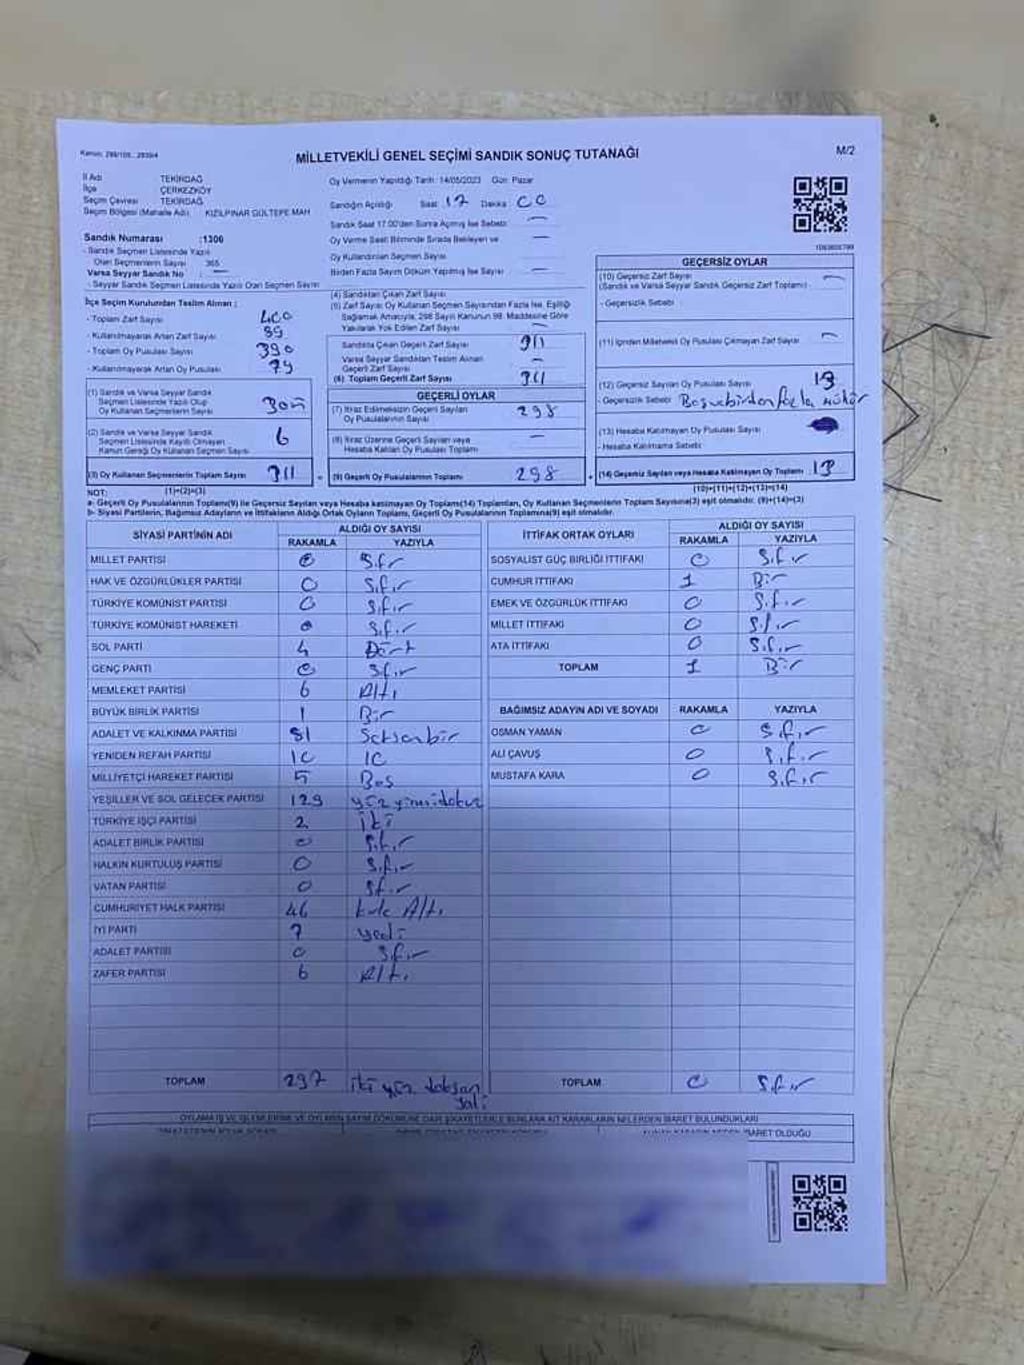 Kanun: 298/105., 2839/4
MİLLETVEKİLİ GENEL SEÇİMİ SANDIK SONUÇ TUTANAĞI
M/2
İl Adı TEKİRDAĞ
İlçe ÇERKEZKÖY
Seçim Çevresi TEKİRDAĞ
Seçim Bölgesi (Mahalle Adı) KIZILPINAR GÜLTEPE MAH
Sandık Numarası :1306
- Sandık Seçmen Listesinde Yazılı
Olan Seçmenlerin Sayısı 365
Varsa Seyyar Sandık No : —
- Seyyar Sandık Seçmen Listesinde Yazılı Olan Seçmen Sayısı
Oy Vermenin Yapıldığı Tarih: 14/05/2023 Gün: Pazar
Sandığın Açıldığı Saat 17 Dakika 00
Sandık Saat 17.00'den Sonra Açılmış İse Sebebi —
Oy Verme Saati Bitiminde Sırada Bekleyen ve —
Oy Kullandırılan Seçmen Sayısı
Birden Fazla Sayım Döküm Yapılmış İse Sayısı —
İlçe Seçim Kurulundan Teslim Alınan :
- Toplam Zarf Sayısı 400
- Kullanılmayarak Artan Zarf Sayısı 89
- Toplam Oy Pusulası Sayısı 390
- Kullanılmayarak Artan Oy Pusulası 79
(1) Sandık ve Varsa Seyyar Sandık
Seçmen Listesinde Yazılı Olup
Oy Kullanan Seçmenlerin Sayısı 305
(2) Sandık ve Varsa Seyyar Sandık
Seçmen Listesinde Kayıtlı Olmayan
Kanun Gereği Oy Kullanan Seçmen Sayısı 6
(3) Oy Kullanan Seçmenlerin Toplam Sayısı 311
(1)+(2)=(3)
(4) Sandıktan Çıkan Zarf Sayısı
(5) Zarf Sayısı Oy Kullanan Seçmen Sayısından Fazla İse, Eşitliği
Sağlamak Amacıyla, 298 Sayılı Kanunun 98. Maddesine Göre
Yakılarak Yok Edilen Zarf Sayısı —
Sandıkta Çıkan Geçerli Zarf Sayısı 311
Varsa Seyyar Sandıktan Teslim Alınan
Geçerli Zarf Sayısı —
(6) Toplam Geçerli Zarf Sayısı 311
GEÇERLİ OYLAR
(7) İtiraz Edilmeksizin Geçerli Sayılan
Oy Pusulalarının Sayısı 298
(8) İtiraz Üzerine Geçerli Sayılan veya
Hesaba Katılan Oy Pusulası Toplamı —
(9) Geçerli Oy Pusulalarının Toplamı 298
GEÇERSİZ OYLAR
(10) Geçersiz Zarf Sayısı
(Sandık ve Varsa Seyyar Sandık Geçersiz Zarf Toplamı) —
- Geçersizlik Sebebi
(11) İçinden Milletvekili Oy Pusulası Çıkmayan Zarf Sayısı —
(12) Geçersiz Sayılan Oy Pusulası Sayısı 13
- Geçersizlik Sebebi Boş ve birden fazla mühür
(13) Hesaba Katılmayan Oy Pusulası Sayısı
- Hesaba Katılmama Sebebi
(14) Geçersiz Sayılan veya Hesaba Katılmayan Oy Toplamı 13
(10)+(11)+(12)+(13)=(14)
NOT:
a- Geçerli Oy Pusulalarının Toplamı(9) ile Geçersiz Sayılan veya Hesaba katılmayan Oy Toplamı(14) Toplamları, Oy Kullanan Seçmenlerin Toplam Sayısına(3) eşit olmalıdır. (9)+(14)=(3)
b- Siyasi Partilerin, Bağımsız Adayların ve İttifakların Aldığı Ortak Oyların Toplamı, Geçerli Oy Pusulalarının Toplamına(9) eşit olmalıdır.
SİYASİ PARTİNİN ADI ALDIĞI OY SAYISI
RAKAMLA YAZIYLA
MİLLET PARTİSİ 0 Sıfır
HAK VE ÖZGÜRLÜKLER PARTİSİ 0 Sıfır
TÜRKİYE KOMÜNİST PARTİSİ 0 Sıfır
TÜRKİYE KOMÜNİST HAREKETİ 0 Sıfır
SOL PARTİ 4 Dört
GENÇ PARTİ 0 Sıfır
MEMLEKET PARTİSİ 6 Altı
BÜYÜK BİRLİK PARTİSİ 1 Bir
ADALET VE KALKINMA PARTİSİ 81 Seksenbir
YENİDEN REFAH PARTİSİ 10 10
MİLLİYETÇİ HAREKET PARTİSİ 5 Beş
YEŞİLLER VE SOL GELECEK PARTİSİ 129 yüz yirmi dokuz
TÜRKİYE İŞÇİ PARTİSİ 2 İki
ADALET BİRLİK PARTİSİ 0 Sıfır
HALKIN KURTULUŞ PARTİSİ 0 Sıfır
VATAN PARTİSİ 0 Sıfır
CUMHURİYET HALK PARTİSİ 46 kırk Altı
İYİ PARTİ 7 yedi
ADALET PARTİSİ 0 Sıfır
ZAFER PARTİSİ 6 Altı
TOPLAM 297 iki yüz doksan
yedi
İTTİFAK ORTAK OYLARI ALDIĞI OY SAYISI
RAKAMLA YAZIYLA
SOSYALİST GÜÇ BİRLİĞİ İTTİFAKI 0 Sıfır
CUMHUR İTTİFAKI 1 Bir
EMEK VE ÖZGÜRLÜK İTTİFAKI 0 Sıfır
MİLLET İTTİFAKI 0 Sıfır
ATA İTTİFAKI 0 Sıfır
TOPLAM 1 Bir
BAĞIMSIZ ADAYIN ADI VE SOYADI RAKAMLA YAZIYLA
OSMAN YAMAN 0 Sıfır
ALİ ÇAVUŞ 0 Sıfır
MUSTAFA KARA 0 Sıfır
TOPLAM 0 Sıfır
OYLAMA İŞ VE İŞLEMLERİNE VE OYLARIN SAYIM DÖKÜMÜNE DAİR ŞİKAYETLERLE BUNLARA AİT KARARLARIN NELERDEN İBARET BULUNDUKLARI